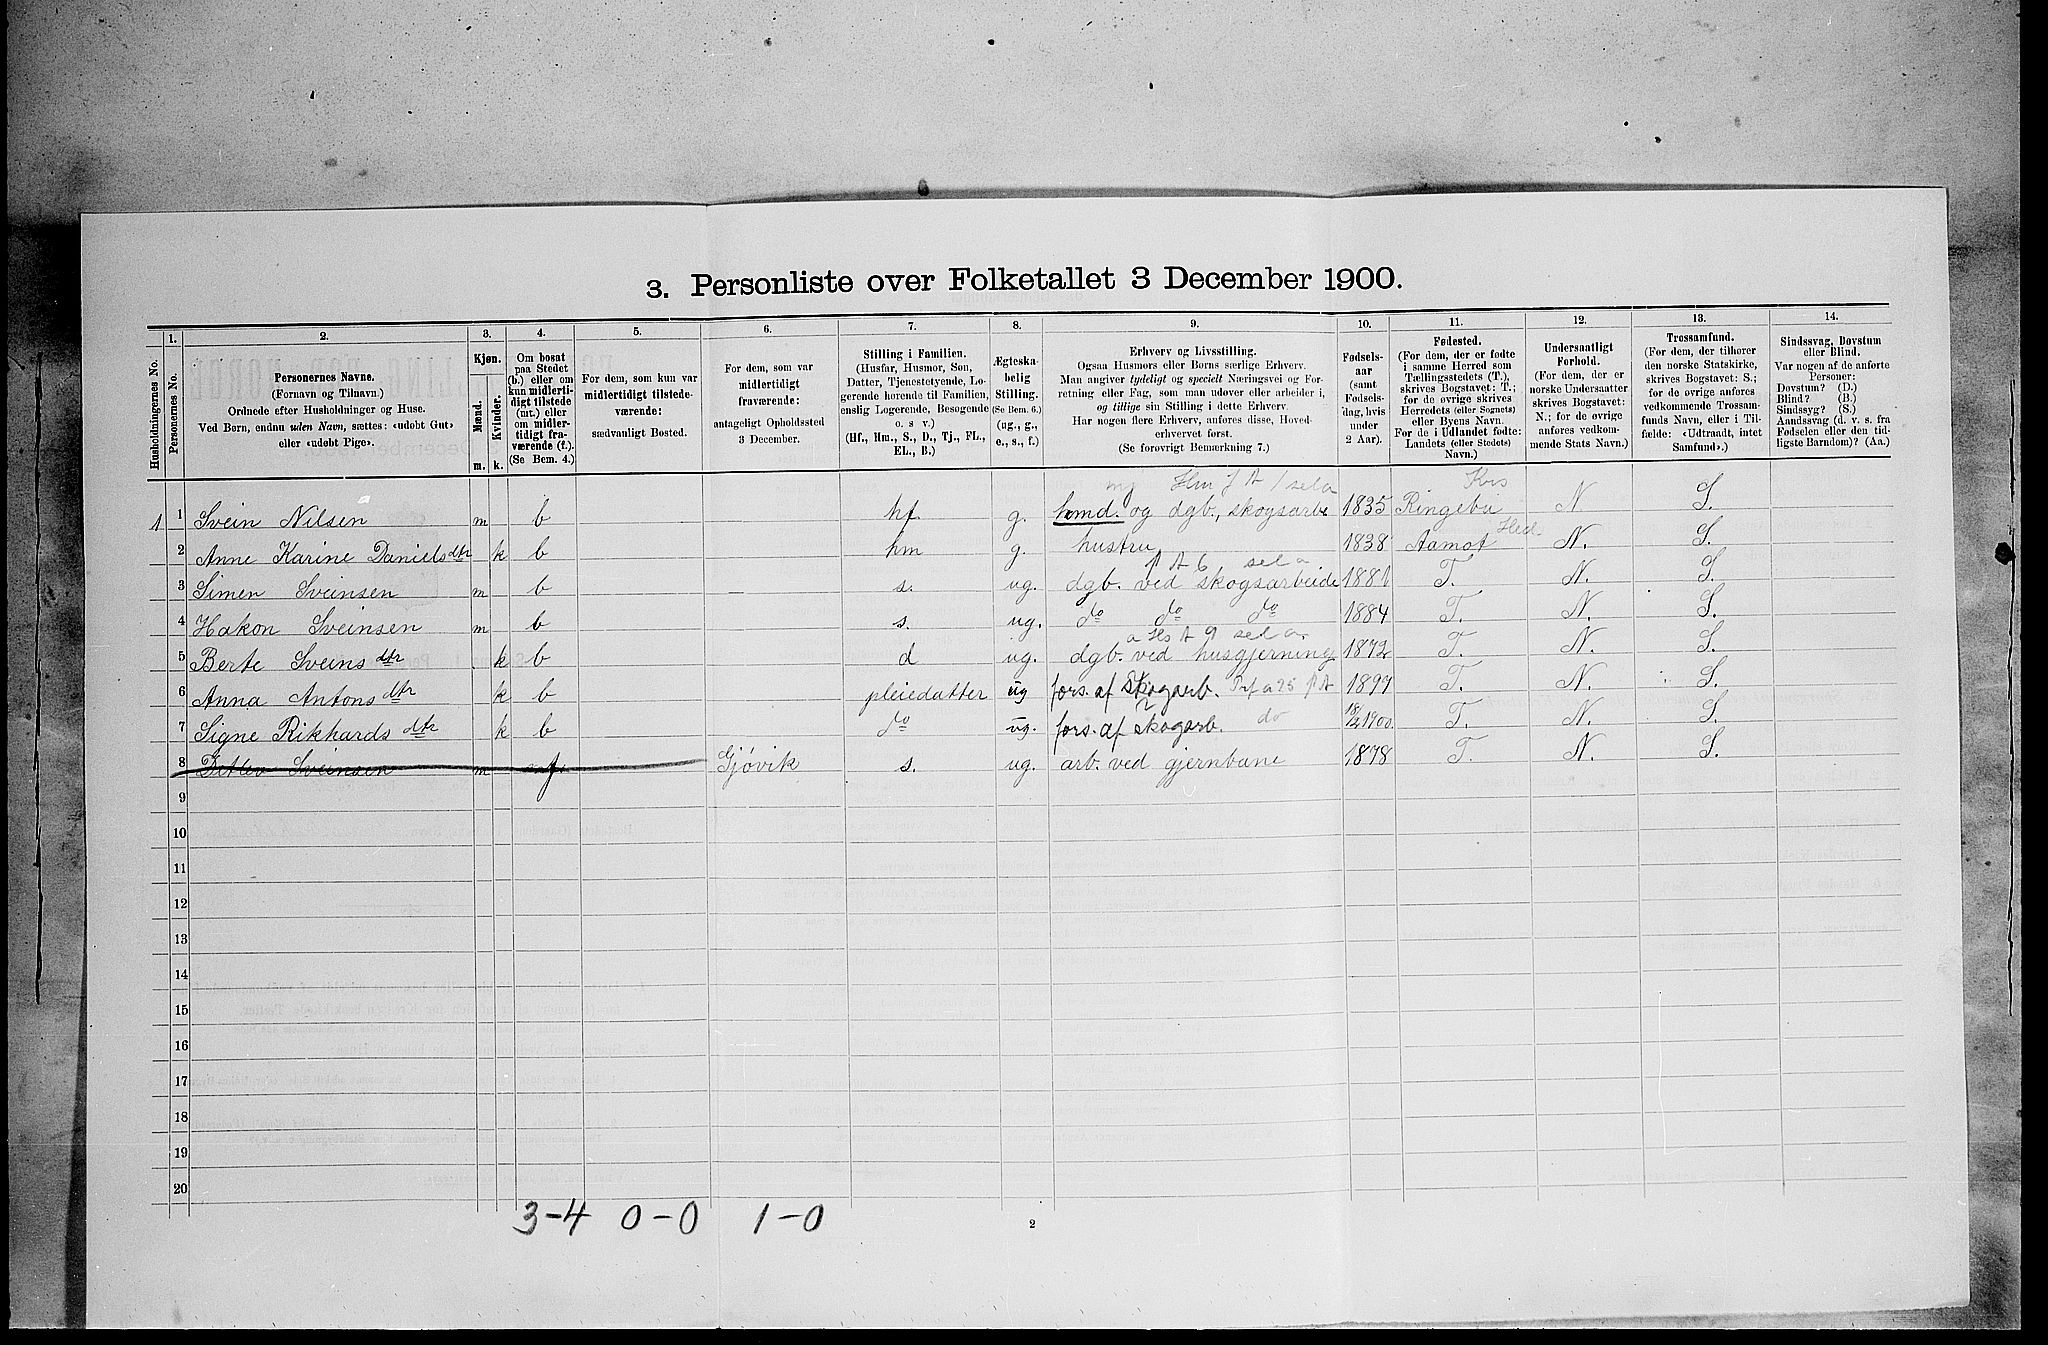 3. Personliste over Folketallet 3 December 1900.
1. 2. 3. 4. 5. 6. 7. 8. 9. 10. 11. 12. 13. 14.
Husholdningernes No.
Personernes No.
Personernes Navne.
(Fornavn og Tilnavn.)
Ordnede efter Husholdninger og Huse.
Ved Børn, endnu uden Navn, sættes: «udøbt Gut»
eller «udøbt Pige».
Kjøn.
Mænd. Kvinder.
m. k.
Om bosat
paa Stedet
(b.) eller om
kun midlerti-
digt tilstede
(mt.) eller
om midler-
tidigt fra-
værende (f.).
(Se Bem. 4.)
For dem, som kun var
midlertidigt tilstede-
værende:
sædvanligt Bosted.
For dem, som var
midlertidigt
fraværende:
antageligt Opholdssted
3 December.
Stilling i Familien.
(Husfar, Husmor, Søn,
Datter, Tjenestetyende, Lo-
gerende hørende til Familien,
enslig Logerende, Besøgende
o. s v.)
(Hf., Hm., S., D., Tj., FL.,
EL., B.)
Ægteska-
belig
Stilling.
(Se Bem. 6.)
(ug., g.,
e., s., f.)
Erhverv og Livsstilling.
Ogsaa Husmors eller Børns særlige Erhverv.
Man angiver tydeligt og specielt Næringsvei og For-
retning eller Fag, som man udøver eller arbeider i,
og tillige sin Stilling i dette Erhverv.
Har nogen flere Erhverv, anføres disse, Hoved-
erhvervet først.
(Se forøvrigt Bemærkning 7.)
Fødsels-
aar
(samt
Fødsels-
dag, hvis
under
2 Aar).
Fødested.
(For dem, der er fødte
i samme Herred som
Tællingsstedets (T.),
skrives Bogstavet: T.;
for de øvrige skrives
Herredets (eller Sognets)
eller Byens Navn.
For de i Udlandet fødte:
Landets (eller Stedets)
Navn.)
Undersaatligt
Forhold.
(For dem, der er
norske Undersaatter
skrives Bogstavet:
N.; for de øvrige
anføres vedkom-
mende Stats Navn.)
Trossamfund.
(For dem, der tilhører
den norske Statskirke,
skrives Bogstavet: S.;
for de øvrige anføres
vedkommende Trossam-
funds Navn, eller i Til-
fælde: «Udtraadt, intet
Samfund».)
Sindssvag, Døvstum
eller Blind.
Var nogen af de anførte
Personer:
Døvstum? (D.)
Blind? (B.)
Sindssyg? (S.)
Aandssvag (d. v. s. fra
Fødselen eller den tid-
ligste Barndom)? (Aa.)
1 1 Svein Nilsen m b hf. g. hmd. og dgb., skogsarbe 1835 Ringebu Krs N S.
2 Anne Karine Danielsdtr k b hm g. hustru 1838 Aamot Hed. N. S.
3 Simen Sveinsen m b s. ug. dgb. ved skogsarbeide 1881 T. N. S.
4 Hakon Sveinsen m b s. ug. do do do 1884 T. N. S.
5 Berte Sveinsdtr k b d ug. dgb. ved husgjerning 1872 T. N. S.
6 Anna Antonsdtr k b pleiedatter ug fors. af skogarb. 1897 T. N. S.
7 Signe Rikhardsdtr k b do ug. fors. af skogarb. do 18/4 1900 T. N. S.
8 Detlev Sveinsen m f Gjøvik s. ug. arb. ved gjernbane 1878 T. N. S.
9
10
11
12
13
14
15
16
17
18
19
20
3-4 0-0 1-0
2